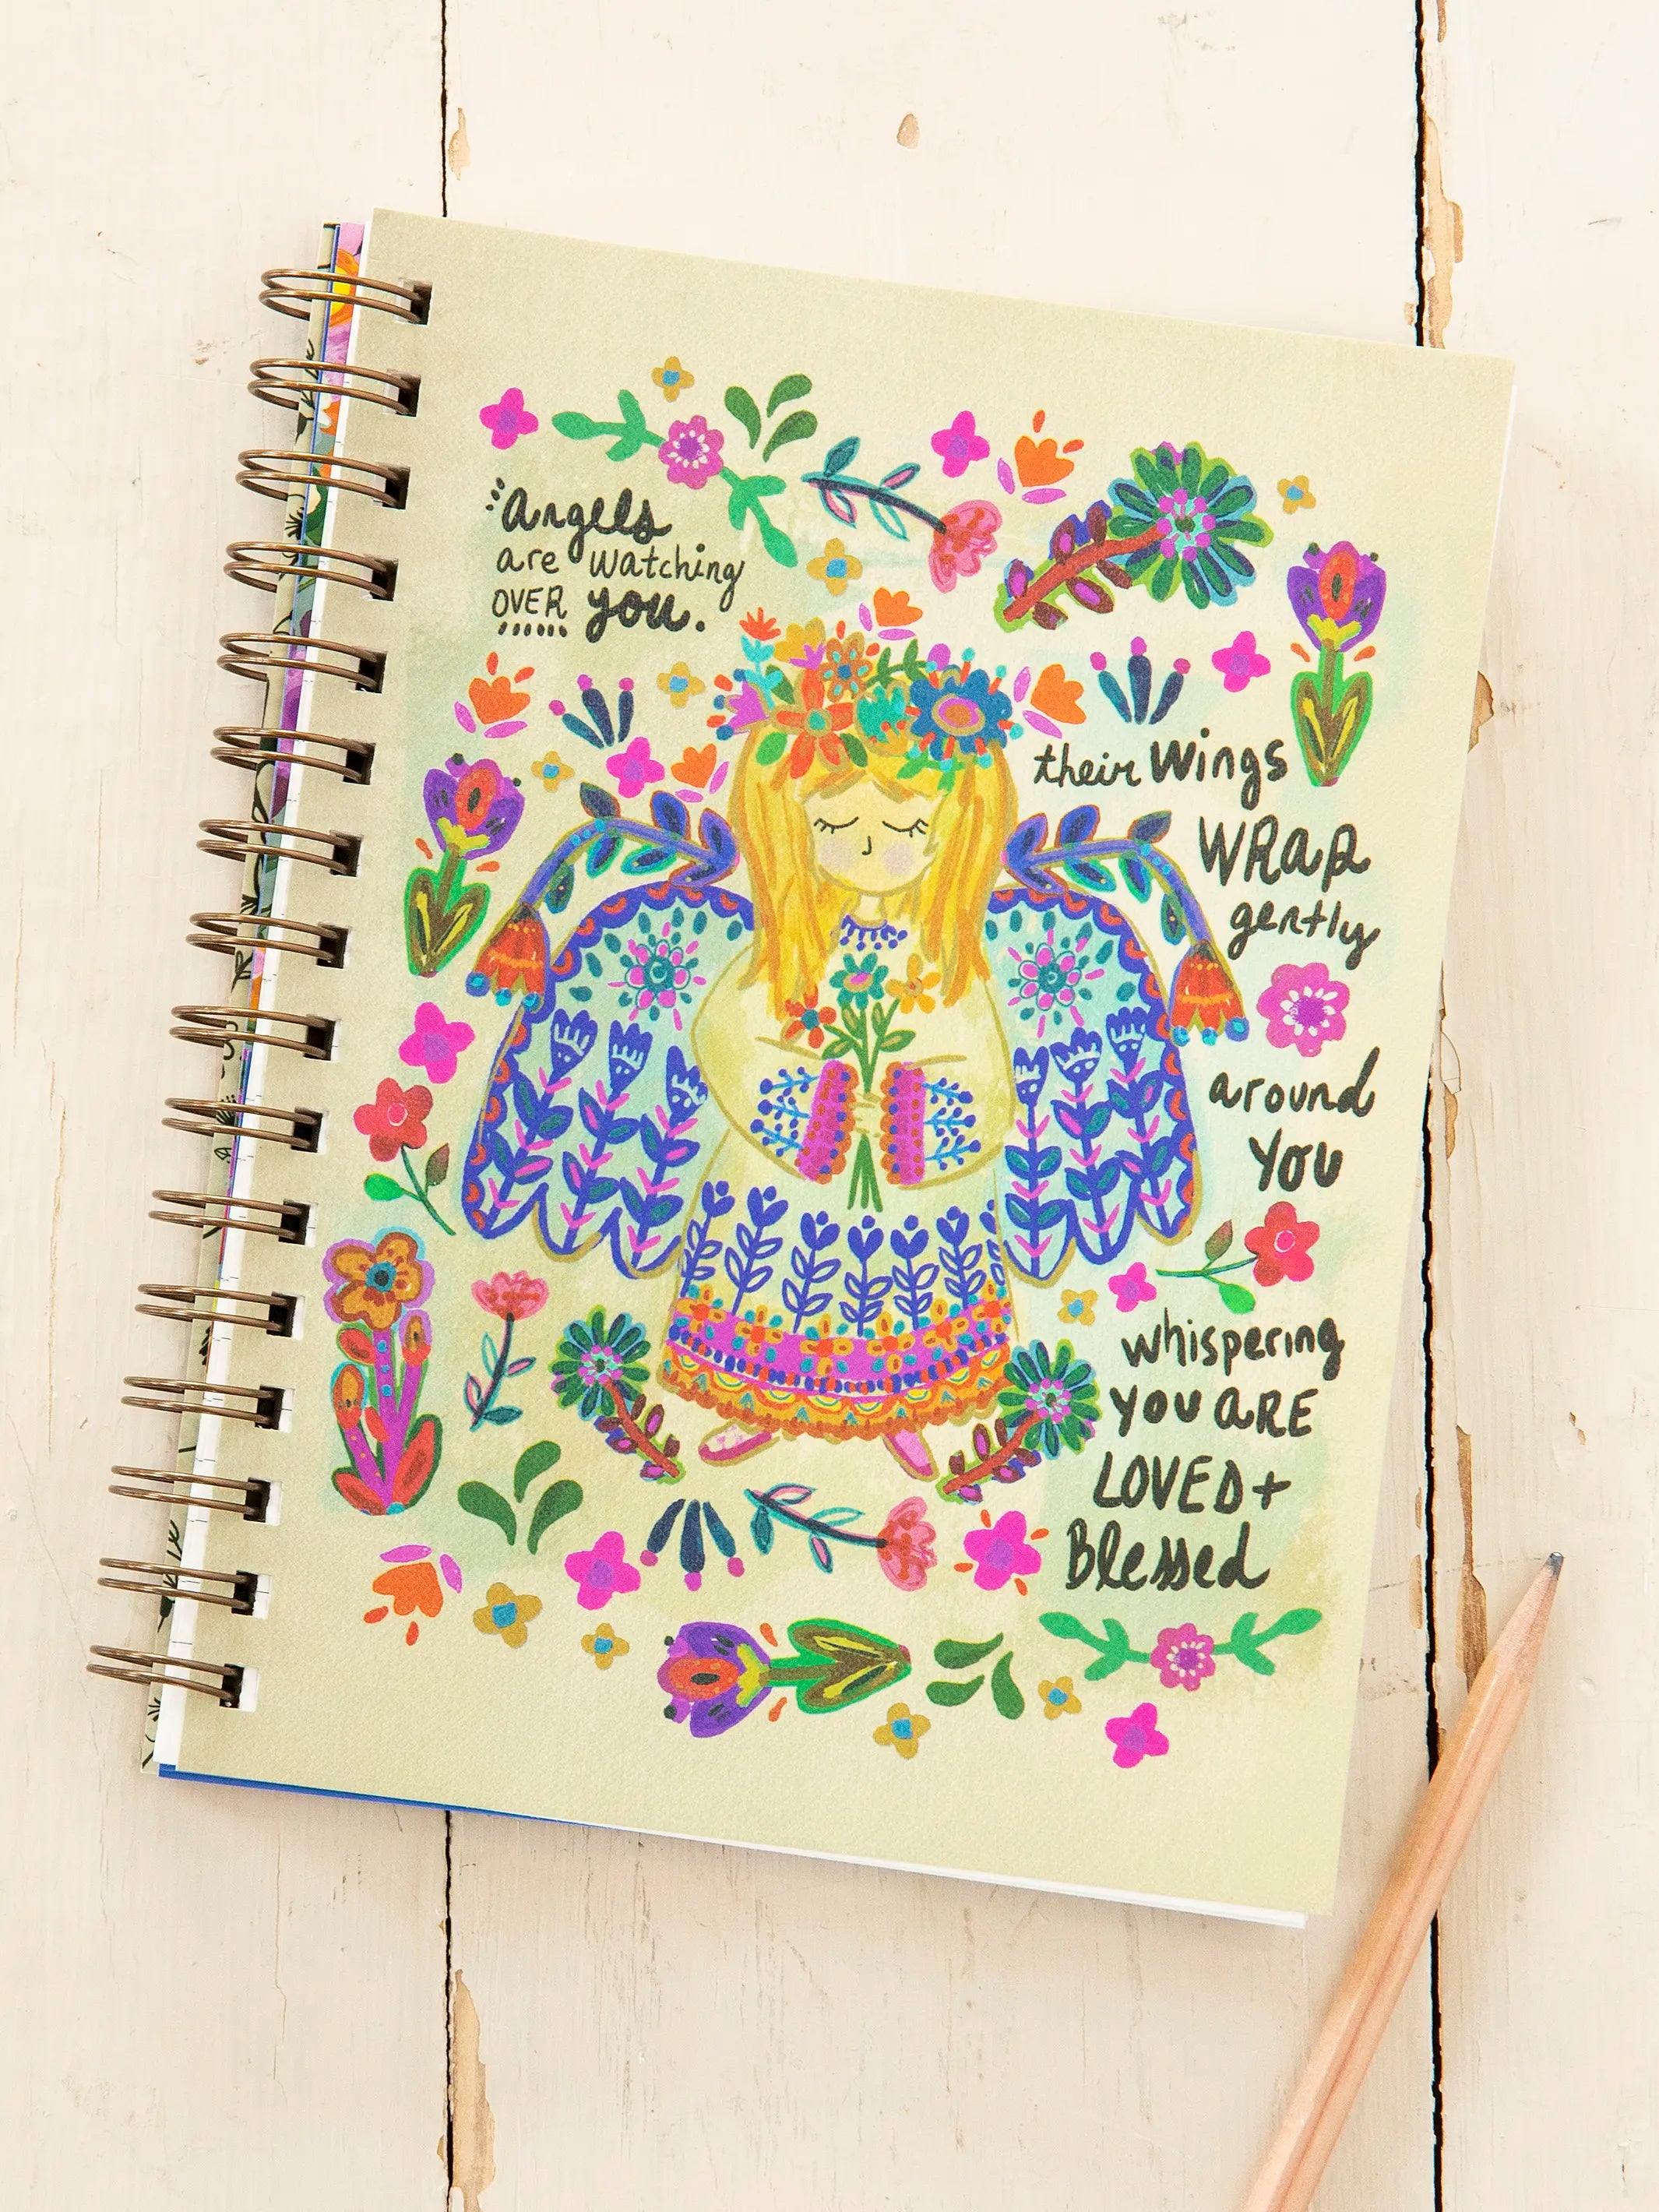 Angels
are watching
OVER you.
their Wings
WRap
gently
around
You
whispering
YOU aRE
LOVED+
Blessed